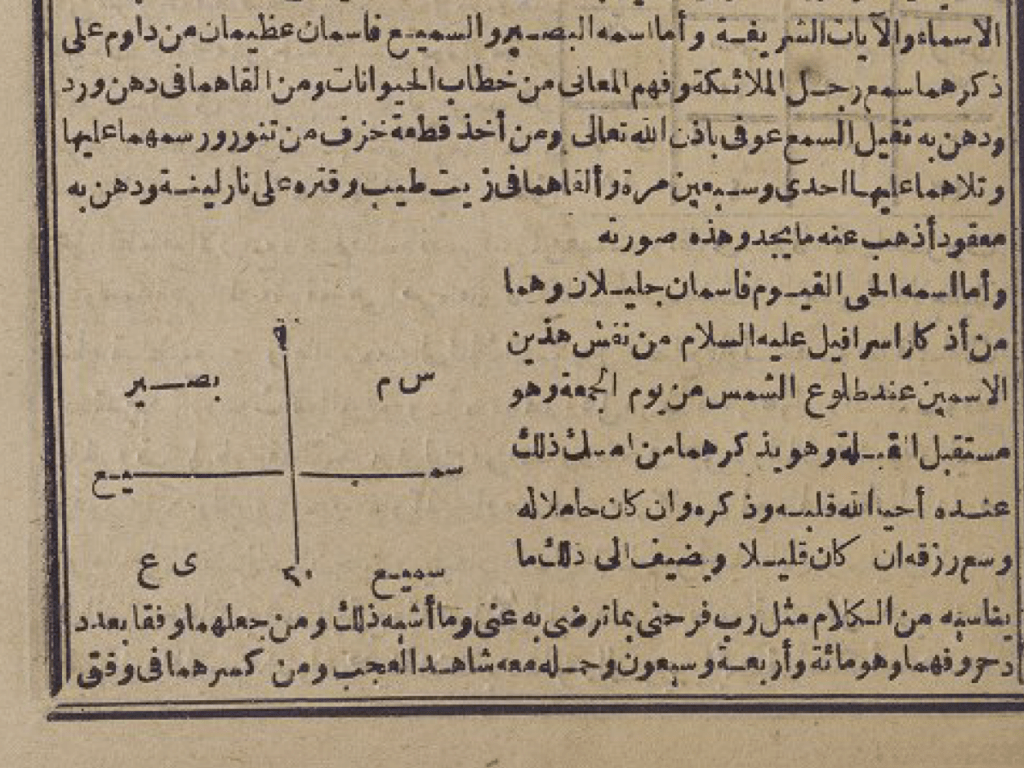 الاسماء والآيات الشريفة وأما اسمه البصير والسميع فاسمان عظيمان من داوم على
ذكرهما سمع زجل الملائكة وفهم المعانى من خطاب الحيوانات ومن القاهما فى دهن ورد
ودهن به ثقيل السمع عوفى باذن الله تعالى ومن أخذ قطعة خزف من تنور ورسمهما عليها
وتلاهما عليها احدى وسبعين مرة وألقاهما فى زيت طيب وقتره على نار لينة ودهن به
معقود أذهب عنه ما يجد وهذه صورته
وأما اسمه الحى القيوم فاسمان جليلان وهما
من أذكار اسرافيل عليه السلام من نقش هذين
الاسمين عند طلوع الشمس من يوم الجمعة وهو
مستقبل القبلة وهو يذكرهما من امسك ذلك
عنده أحيا الله قلبه وذكره وان كان حاملا له
وسع رزقه ان كان قليلا ويضيف الى ذلك ما
س م
بصير
سميع
ى ع
سميع
يناسبه من الكلام مثل رب فرحنى بما ترضى به عنى وما أشبه ذلك ومن جعلهما وفقا بعدد
حروفهما وهو مائة وأربعة وسبعون وحمله معه شاهد العجب ومن كسرهما فى وفق